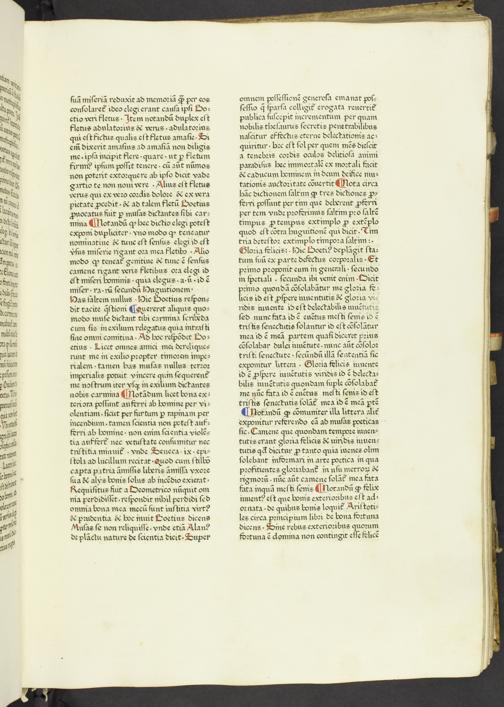 suā miseriā reduxit ad memoriā ꝙ per eos
consolareē ideo elegi erant causa ipsi Bo-
etio veri fletus · Item notandū duplex est
fletus adulatorius & verus · adulatorius
qui est fictus qualis est fletus amasie · Si
em̄ dixerit amasius ad amasiā non diligis
me · ipsa incipit flere · quare · ut ꝑ fletum
firmiꝰ ipsum possit tenere · cū aūt nūmos
non poterit extorquere ab ipso dicit vade
garcio te non noui vere · Alius est fletus
verus qui ex vero cordis dolore & ex vera
pietate ꝓcedit · & ad talem fletū Boetius
ꝓuocatus fuit ꝑ musas dictantes sibi car-
mina Notandū ꝙ hec dictio elegi potest
exponi dupliciter · vno modo ꝙ teneatur
nominatiue & tunc est sensus elegi id est
vſus miserie rigant ora mea fletibꝰ · Alio
modo ꝙ teneatꝰ genitiue & tunc ē sensus
camene rigant veris fletibus ora elegi id
est miseri hominis · quia elegus · a · ū · id ē
miser · ra · rū secundū Huguitionem ·
Has saltem nullus · Hic Boetius respon-
dit tacite q̄stioni Quereret aliquis quo-
modo muse dictant tibi carmina scribenda
cum sis in exilium relegatus quia intrasti
sine omni comitiua · Ad hoc respōdet Bo-
etius · Licet omnes amici mei dereliquer-
runt me in exilio propter timorem impe-
rialem · tamen has musas nullus terror
imperialis potuit vincere quin sequerentꝰ
me nostrum iter vsqꝫ in exilium dictantes
nobis carmina Notādum licet bona ex-
teriora possunt auferri ab homine per vi-
olentiam · sicut per furtum ꝑ rapinam per
incendium · tamen scientia non potest auf-
ferri ab homine · non enim scientia violē-
tia aufertꝰ nec vetustate consumitur nec
tristitia minuitꝰ · vnde Seneca · ix · epi-
stola ad lucillum recitat · Quod cum stilbo
capta patria amissis liberis amissa vxore
sua & alijs bonis solus ab incēdio exierat ·
Requisitus fuit a Deometrico nūquit om-
nia perdidisset · respondit nihil perdidi sed
omnia bona mea mecū sunt iustitia virtꝰ
& prudentia & hoc inuit Boetius dicens
Musas se non reliquisse · vnde etiā Alanꝰ
de plāctu nature de scientia dicit · Super
omnem possessionē generosa emanat pos-
sessio q̄ sparsa colligitꝰ erogata reuertitꝰ
publica suscepit incrementum per quam
nobilis thesaurus secretis penetrabilibus
nascitur effectus eterne delectationis ac-
quiritur · hec est sol per quem mēs dīescit
a tenebris cordis oculus delitiosa animi
paradisus hec immortalē ex mortali facit
& caducum hominem in deum deifice mu-
tationis auctoritate cōuertit Nota circa
hāc dictionem saltim ꝙ tres dictiones ꝓ-
ferri possunt per tim que deberent ꝓferri
per tem vnde proferimus saltim ꝓ saltē
timpus ꝓ tempus extimplo ꝓ extēplo
quod est cōtra huguitionē qui dicit · Tim
tria detestor extimplo timpora saltim : ·
Gloria felicis · Hic Boetiꝰ deplāgit sta-
tum suū ex parte defectus corporalis · Et
primo proponit eum in generali · secundo
in spetiali · secunda ibi venit enim · Dicit
primo quondā cōsolabātur me gloria fe-
licis id est ꝓspere iuuentutis & gloria vi-
ridis iuuente id est delectabilis iuuētutis
sed nunc fata id ē euētus mesti senis id ē
tristis senectutis solantur id est cōsolātur
mea id ē meā partem quasi diceret prius
cōsolabātꝰ dulci iuuētute · nunc aūt cōsolor
tristi senectute · secundū illā sententiā sic
expomitur littera · Gloria felicis iuuente
id ē ꝓspere iuuētutis viridis id ē delecta-
bilis iuuētutis quondam supple cōsolabāꝰ
me nūc fata id ē euētus mesti senis id est
tristis senectutis solāꝰ mea id ē meā ꝑtē
Notandū ꝙ cōmuniter illa littera alitꝰ
exponitur referendo eā ad musas poeticas
sic · Camene que quondam tempore iuuen-
tutis erant gloria felicis & viridis iuuen-
tutis qd̄ dicitur ꝑ tanto quia iuuenes olim
solebant informari in arte poetica in qua
profitientes gloriabantꝰ in usu metrorꝫ &
rigmorū · nūc aūt camene solātꝰ mea fata
fata inquā mesti senis Notandū ꝙ felix
iuuentꝰ est que bonis exterioribus est ad-
ornata · de quibus bonis loquitꝰ Aristoti-
les circa principium libri de bona fortuna
dicens · Sine rebus exterioribus quorum
fortuna ē domina non contingit esse felicē